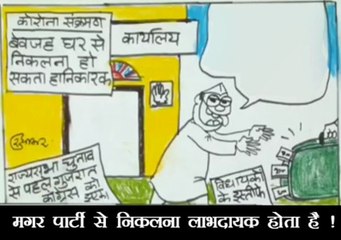 कोरोना संक्रमण
बेवजह घर से
निकलना हो
सकता हानिकारक
कार्यालय
राज्यसभा चुनाव
से पहले गुजरात
कांग्रेस को
झटका
विधायकों
के इस्तीफे
मगर पार्टी से निकलना लाभदायक होता है !